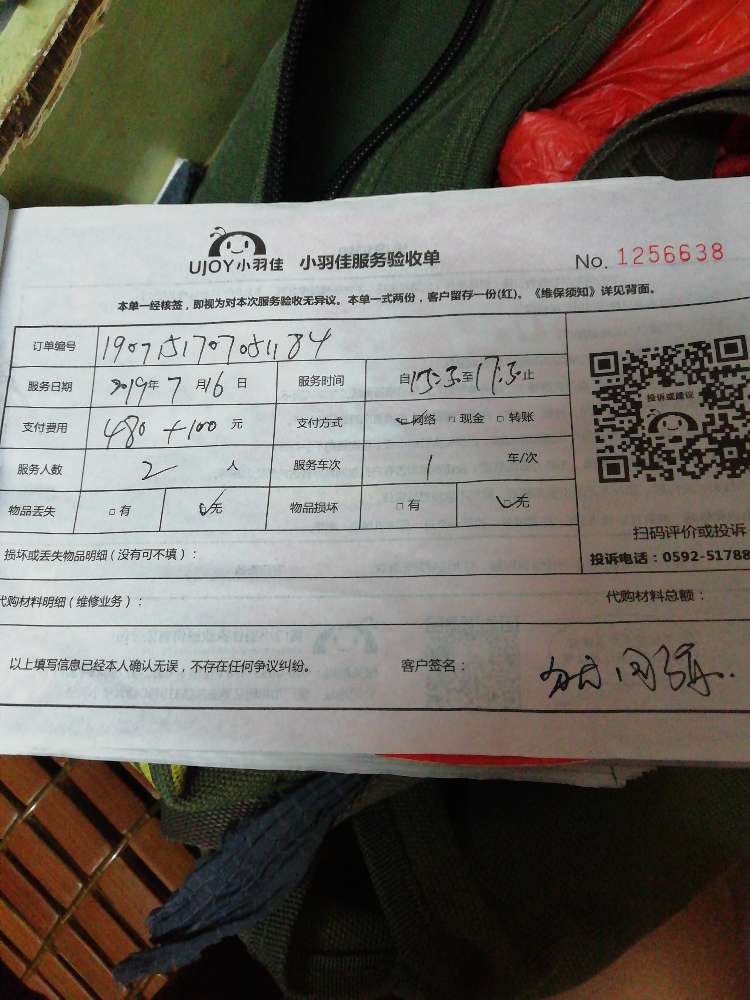 UJOY小羽佳 小羽佳服务验收单 No. 1256638
本单一经核签，即视为对本次服务验收无异议。本单一式两份，客户留存一份(红)。《维保须知》详见背面。
订单编号 1907151707051184
服务日期 2019年7月16日 服务时间 自15:30至17:30止
支付费用 480+100元 支付方式 网络 现金 转账
服务人数 2人 服务车次 1车/次
物品丢失 有 无 物品损坏 有 无
投诉或建议
扫码评价或投诉
损坏或丢失物品明细（没有可不填）：
投诉电话：0592-51788
代购材料明细（维修业务）： 代购材料总额：
以上填写信息已经本人确认无误，不存在任何争议纠纷。 客户签名：